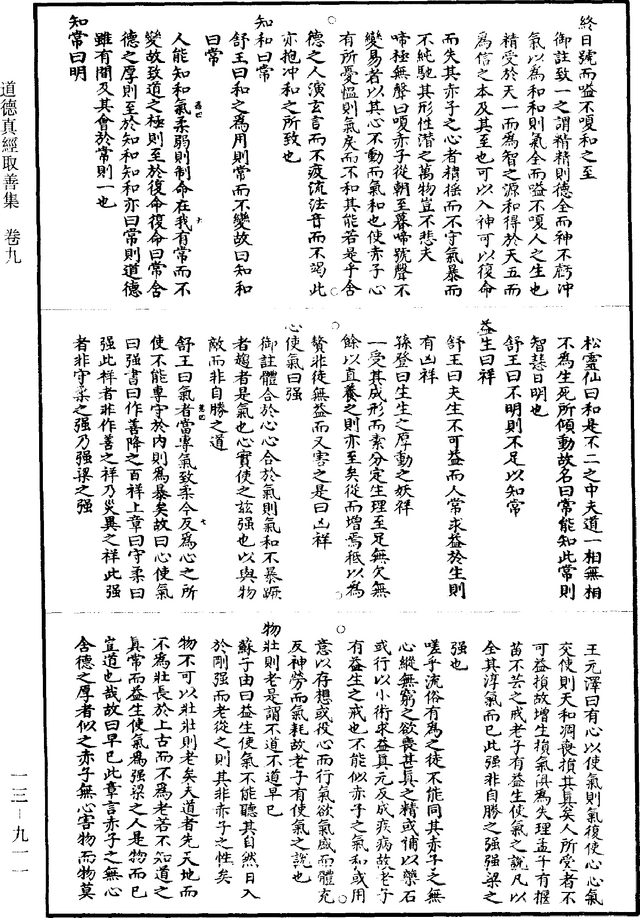 終日號而嗌不嗄和之至
御註致一之謂精精則德全而神不虧沖
氣以為和和則氣全而嗌不嗄人之生也
精受於天一而為智之源和得於天五而
為信之本及其至也可以入神可以復命
而失其赤子之心者精搖而不守氣暴而
不純馳其形性潛之萬物豈不悲夫
啼極無聲曰嗄赤子從朝至暮啼號聲不
變易者以其心不動而氣和也使赤子心
有所憂慍則氣戾而不和其能若是乎含
德之人演玄言而不疲流法音而不竭此
亦抱冲和之所致也
知和曰常
舒王曰和之為用則常而不變故曰知和
曰常
人能知和氣柔弱則制命在我有常而不
變故致道之極則至於復命復命曰常含
德之厚則至於知和知和亦曰常則道德
雖有間及其會於常則一也
知常曰明
松靈仙曰和是不二之中夫道一相無相
不為生死所傾動故名曰常能知此常則
智慧日明也
舒王曰不明則不足以知常
益生曰祥
舒王曰夫生不可益而人常求益於生則
有凶祥
孫登曰生生之厚動之妖祥
一受其成形而素分定生理至足無欠無
餘以直養之則亦至矣從而增焉秪以為
贅非徒無益而又害之是曰凶祥
心使氣曰强
御註體合於心心合於氣則氣和不暴蹶
者趨者是氣也心實使之玆强也以與物
敵而非自勝之道
舒王曰氣者當專氣致柔今反為心之所
使不能專守於內則為暴矣故曰心使氣
曰强書曰作善降之百祥上章曰守柔曰
强此祥者非作善之祥乃災異之祥此强
者非守柔之强乃强梁之强
王元澤曰有心以使氣則氣復使心心氣
交使則天和凋喪損其真矣人所受者不
可益損故增生損氣俱為失理孟子有揠
苗不芸之戒老子有益生使氣之說凡以
全其淳氣而已此强非自勝之强强梁之
强也
嗟乎流俗有為之徒不能同其赤子之無
心縱無窮之欲喪甚真之精或補以藥石
或行以小術求益真元反成疾病故老子
有益生之戒也不能似赤子之氣和或用
意以存想或役心而行氣欲氣盛而體充
反神勞而氣耗故老子有使氣之說也
物壯則老是謂不道不道早已
蘇子由曰益生使氣不能聽其自然日入
於剛强而老從之則其非赤子之性矣
物不可以壯壯則老矣夫道者先天地而
不為壯長於上古而不為老若不知道之
真常而益生使氣為强梁之人是物而已
豈道也哉故曰早已此章言赤子之無心
含德之厚者似之赤子無心害物而物莫
道德真經取善集　卷九
一三－九一一